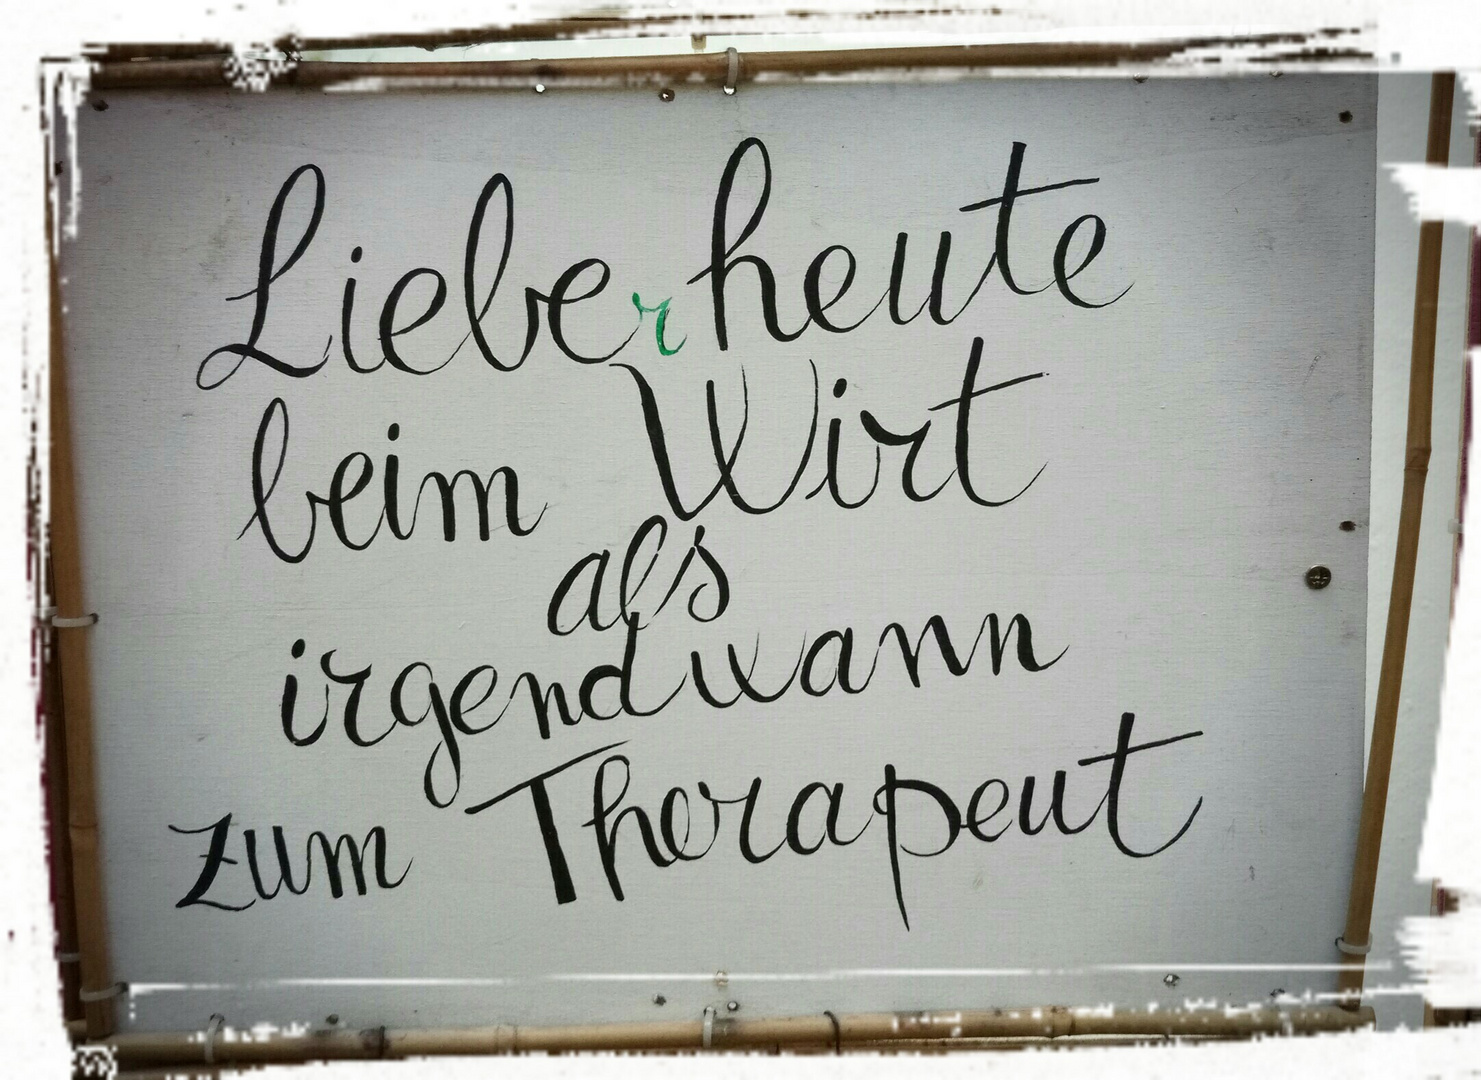 Lieber heute
beim Wirt
als
irgendwann
zum Therapeut